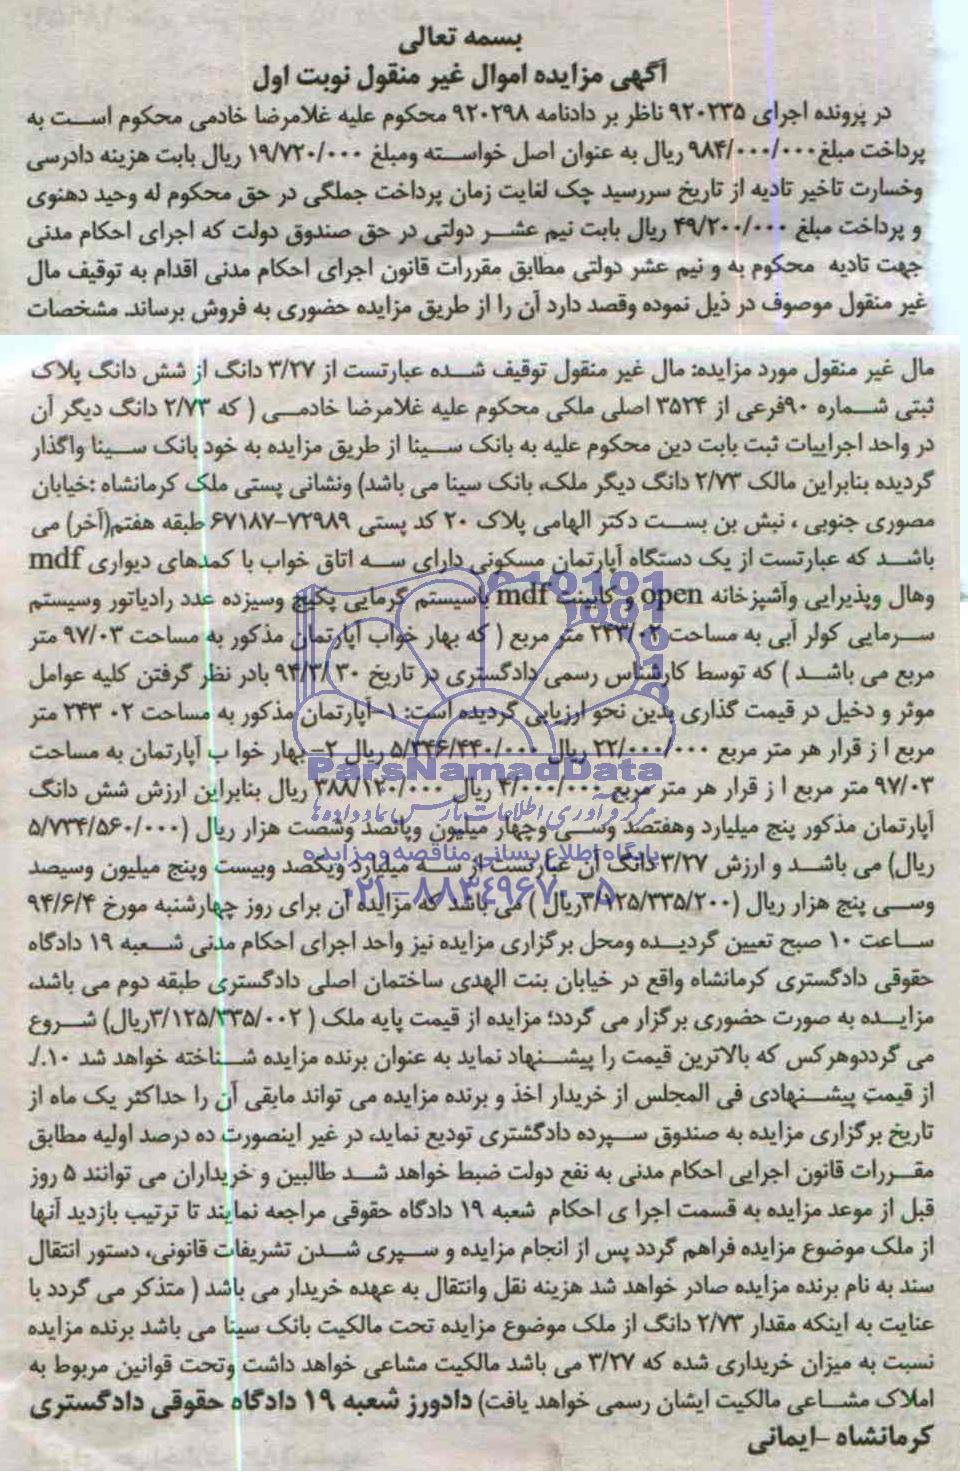 بسمه تعالی
آگهی مزایده اموال غیر منقول نوبت اول
در پرونده اجرای ۹۲۰۲۳۵ ناظر بر دادنامه ۹۲۰۲۹۸ محکوم علیه غلامرضا خادمی محکوم است به
پرداخت مبلغ ۹۸۴/۰۰۰/۰۰۰ ریال به عنوان اصل خواسته ومبلغ ۱۹/۷۲۰/۰۰۰ ریال بابت هزینه دادرسی
وخسارت تاخیر تادیه از تاریخ سررسید چک لغایت زمان پرداخت جملگی در حق محکوم له وحید دهنوی
و پرداخت مبلغ ۴۹/۲۰۰/۰۰۰ ریال بابت نیم عشر دولتی در حق صندوق دولت که اجرای احکام مدنی
جهت تادیه محکوم به و نیم عشر دولتی مطابق مقررات قانون اجرای احکام مدنی اقدام به توقیف مال
غیر منقول موصوف در ذیل نموده وقصد دارد آن را از طریق مزایده حضوری به فروش برساند. مشخصات
مال غیر منقول مورد مزایده: مال غیر منقول توقیف شده عبارتست از ۳/۲۷ دانگ از شش دانگ پلاک
ثبتی شماره ۹۰فرعی از ۳۵۲۴ اصلی ملکی محکوم علیه غلامرضا خادمی ( که ۲/۷۳ دانگ دیگر آن
در واحد اجراییات ثبت بابت دین محکوم علیه به بانک سینا از طریق مزایده به خود بانک سینا واگذار
گردیده بنابراین مالک ۲/۷۳ دانگ دیگر ملک، بانک سینا می باشد) ونشانی پستی ملک کرمانشاه :خیابان
مصوری جنوبی ، نبش بن بست دکتر الهامی پلاک ۲۰ کد پستی ۷۲۹۸۹-۶۷۱۸۷ طبقه هفتم(آخر) می
باشد که عبارتست از یک دستگاه آپارتمان مسکونی دارای سه اتاق خواب با کمدهای دیواری mdf
وهال وپذیرایی وآشپزخانه open و کابینت mdf باسیستم گرمایی پکیج وسیزده عدد رادیاتور وسیستم
سرمایی کولر آبی به مساحت ۲۴۳/۰۲ متر مربع ( که بهار خواب آپارتمان مذکور به مساحت ۹۷/۰۳ متر
مربع می باشد ) که توسط کارشناس رسمی دادگستری در تاریخ ۹۴/۳/۳۰ بادر نظر گرفتن کلیه عوامل
موثر و دخیل در قیمت گذاری بدین نحو ارزیابی گردیده است: ۱-آپارتمان مذکور به مساحت ۰۲ ۲۴۳ متر
مربع ا ز قرار هر متر مربع ۲۲/۰۰۰/۰۰۰ ریال ۵/۳۴۶/۴۴۰/۰۰۰ ریال ۲- بهار خوا ب آپارتمان به مساحت
۹۷/۰۳ متر مربع ا ز قرار هر متر مربع ۴/۰۰۰/۰۰۰ ریال ۳۸۸/۱۲۰/۰۰۰ ریال بنابراین ارزش شش دانگ
آپارتمان مذکور پنج میلیارد وهفتصد وسی وچهار میلیون وپانصد وشصت هزار ریال (۵/۷۳۴/۵۶۰/۰۰۰
ریال) می باشد و ارزش ۳/۲۷دانگ آن عبارتست از سه میلیارد ویکصد وبیست وپنج میلیون وسیصد
وسی پنج هزار ریال (۳/۱۲۵/۳۳۵/۲۰۰ریال ) می باشد که مزایده آن برای روز چهارشنبه مورخ ۹۴/۶/۴
ساعت ۱۰ صبح تعیین گردیده ومحل برگزاری مزایده نیز واحد اجرای احکام مدنی شعبه ۱۹ دادگاه
حقوقی دادگستری کرمانشاه واقع در خیابان بنت الهدی ساختمان اصلی دادگستری طبقه دوم می باشد،
مزایده به صورت حضوری برگزار می گردد؛ مزایده از قیمت پایه ملک ( ۳/۱۲۵/۳۳۵/۰۰۲ریال) شروع
می گرددوهرکس که بالاترین قیمت را پیشنهاد نماید به عنوان برنده مزایده شناخته خواهد شد ۱۰./.
از قیمت پیشنهادی فی المجلس از خریدار اخذ و برنده مزایده می تواند مابقی آن را حداکثر یک ماه از
تاریخ برگزاری مزایده به صندوق سپرده دادگشتری تودیع نماید، در غیر اینصورت ده درصد اولیه مطابق
مقررات قانون اجرایی احکام مدنی به نفع دولت ضبط خواهد شد طالبین و خریداران می توانند ۵ روز
قبل از موعد مزایده به قسمت اجرا ی احکام شعبه ۱۹ دادگاه حقوقی مراجعه نمایند تا ترتیب بازدید آنها
از ملک موضوع مزایده فراهم گردد پس از انجام مزایده و سپری شدن تشریفات قانونی، دستور انتقال
سند به نام برنده مزایده صادر خواهد شد هزینه نقل وانتقال به عهده خریدار می باشد ( متذکر می گردد با
عنایت به اینکه مقدار ۲/۷۳ دانگ از ملک موضوع مزایده تحت مالکیت بانک سینا می باشد برنده مزایده
نسبت به میزان خریداری شده که ۳/۲۷ می باشد مالکیت مشاعی خواهد داشت وتحت قوانین مربوط به
املاک مشاعی مالکیت ایشان رسمی خواهد یافت) دادورز شعبه ۱۹ دادگاه حقوقی دادگستری
کرمانشاه -ایمانی
ParsNamadData
مرکز فرآوری اطلاعات پارس نماد داده ها
پایگاه اطلاع رسانی مناقصه و مزایده
۰۲۱-۸۸۳۴۹۶۷۰-۵